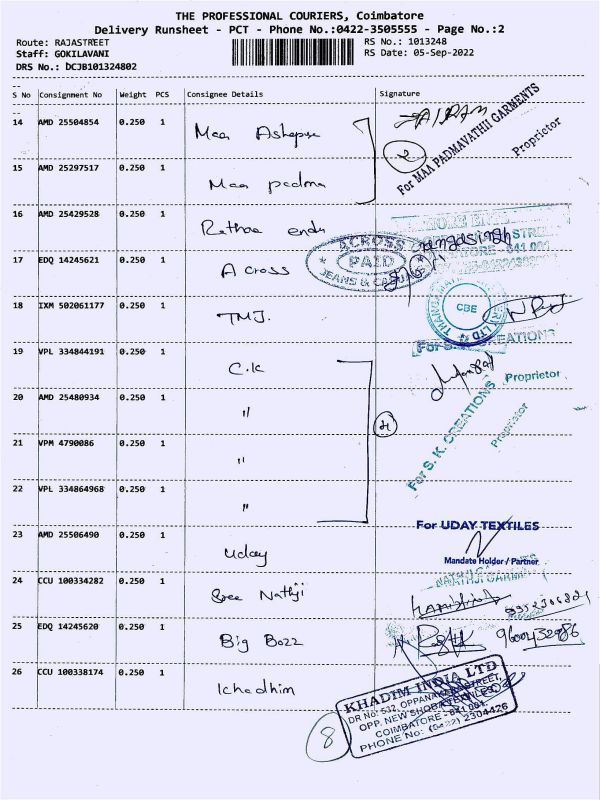 THE PROFESSIONAL COURIERS, Coimbatore
Delivery Runsheet - PCT - Phone No.:0422-3505555 - Page No.:2
Route: RAJASTREET RS No.: 1013248
Staff: GOKILAVANI RS Date: 05-Sep-2022
DRS No.: DCJB101324802
S No Consignment No Weight PCS Consignee Details Signature
14 AMD 25504854 0.250 1 Maa
15 AMD 25297517 0.250 1 Maa padma
For MAA PADMAVATHII GARMENTS
Proprietor
2
16 AMD 25429528 0.250 1
17 EDQ 14245621 0.250 1 A cross
ACROSS
PAID
JEANS & CASUALS
18 IXM 502061177 0.250 1 TMJ.
CBE
19 VPL 334844191 0.250 1 C.K
For S.K. CREATIONS
Proprietor
20 AMD 25480934 0.250 1 "
4
21 VPM 4790086 0.250 1 "
For S. K. CREATIONS
Proprietor
22 VPL 334864968 0.250 1 "
23 AMD 25506490 0.250 1 Uday
For UDAY TEXTILES
Mandate Holder / Partner
24 CCU 100334282 0.250 1 Sree Nathji
25 EDQ 14245620 0.250 1 Big Bozz
26 CCU 100338174 0.250 1 Ichadhim
KHADIM INDIA LTD
DR No: 532, OPPANAKARA STREET,
OPP. NEW SHOBA
COIMBATORE - 641 001.
PHONE No: (0422) 2304426
8